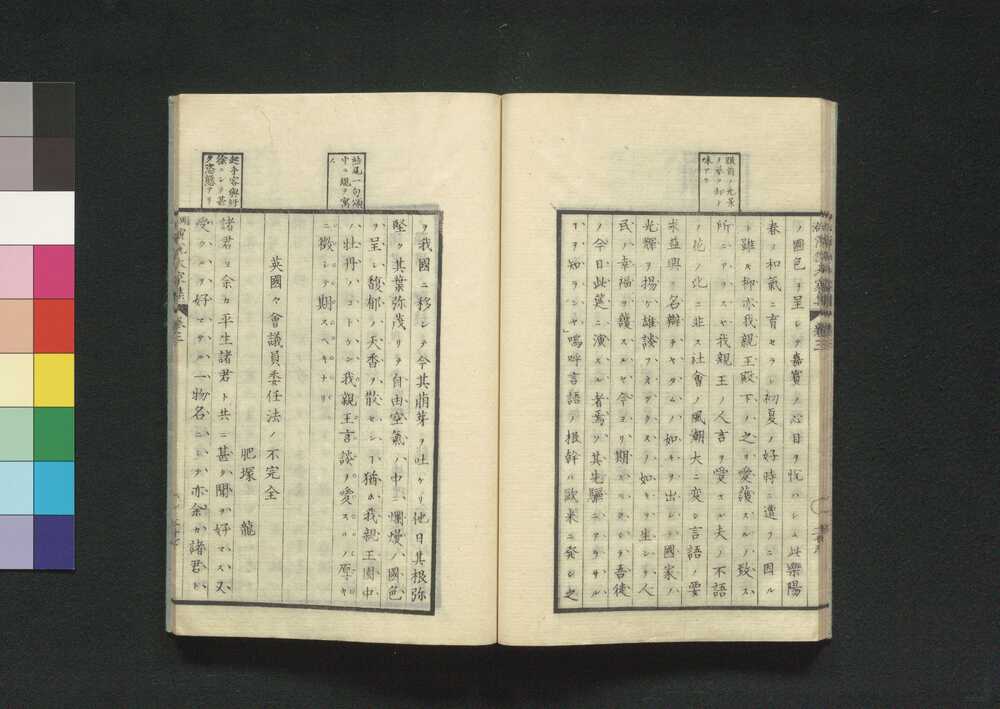 ノ國色ヲ呈シテ嘉賓ノ心目ヲ悅ハシム此樂陽
春ノ和氣ニ育セラレ初夏ノ好時ニ遭フニ因ル
ト雖ス抑亦我親王殿下ノ之ヲ愛護スルノ致ス
所ニアラスヤ我親王ノ人言ヲ愛
ノ化ニ非ス社會ノ風潮大ニ変シ言語ノ要
求益興リ名辯チヤタムノ如キヲ出シ國家ノ
光輝ヲ揚ケ雄談ヲ如キヲ生シ人
民ノ幸福ヲ護スルヤ今ヨリ期シテ吾徒
ノ今日此莚ニ演スル者焉ソ其先驅ニアラサル
ヲ知ランヤ嗚呼言語ノ根幹ハ歐米ニ発シ之
ヲ我國ニ移シテ今其萠芽ヲ吐ケリ他日其根弥
堅ク其葉弥茂リテ自由空氣ノ中ニ爛熳ノ國色
ヲ呈シ馥郁ノ天香ヲ散セシ猶ホ我親王園中
ノ牡丹ノコトケン我親王言談ヲ愛スルノ厚キ
ニ徴シテ期スヘキナリ
結尾一句頌
中ニ規ヲ寓
ス
英國々會議員委任法ノ不完全
肥塚 龍
諸君ヨ余カ平生諸君ト共ニ甚タ聞ヲ好マス又
受クルヲ好マサル一物名ニシテ亦余カ諸君ト
起手容與紆
徐ニシテ甚
タ恣態アリ